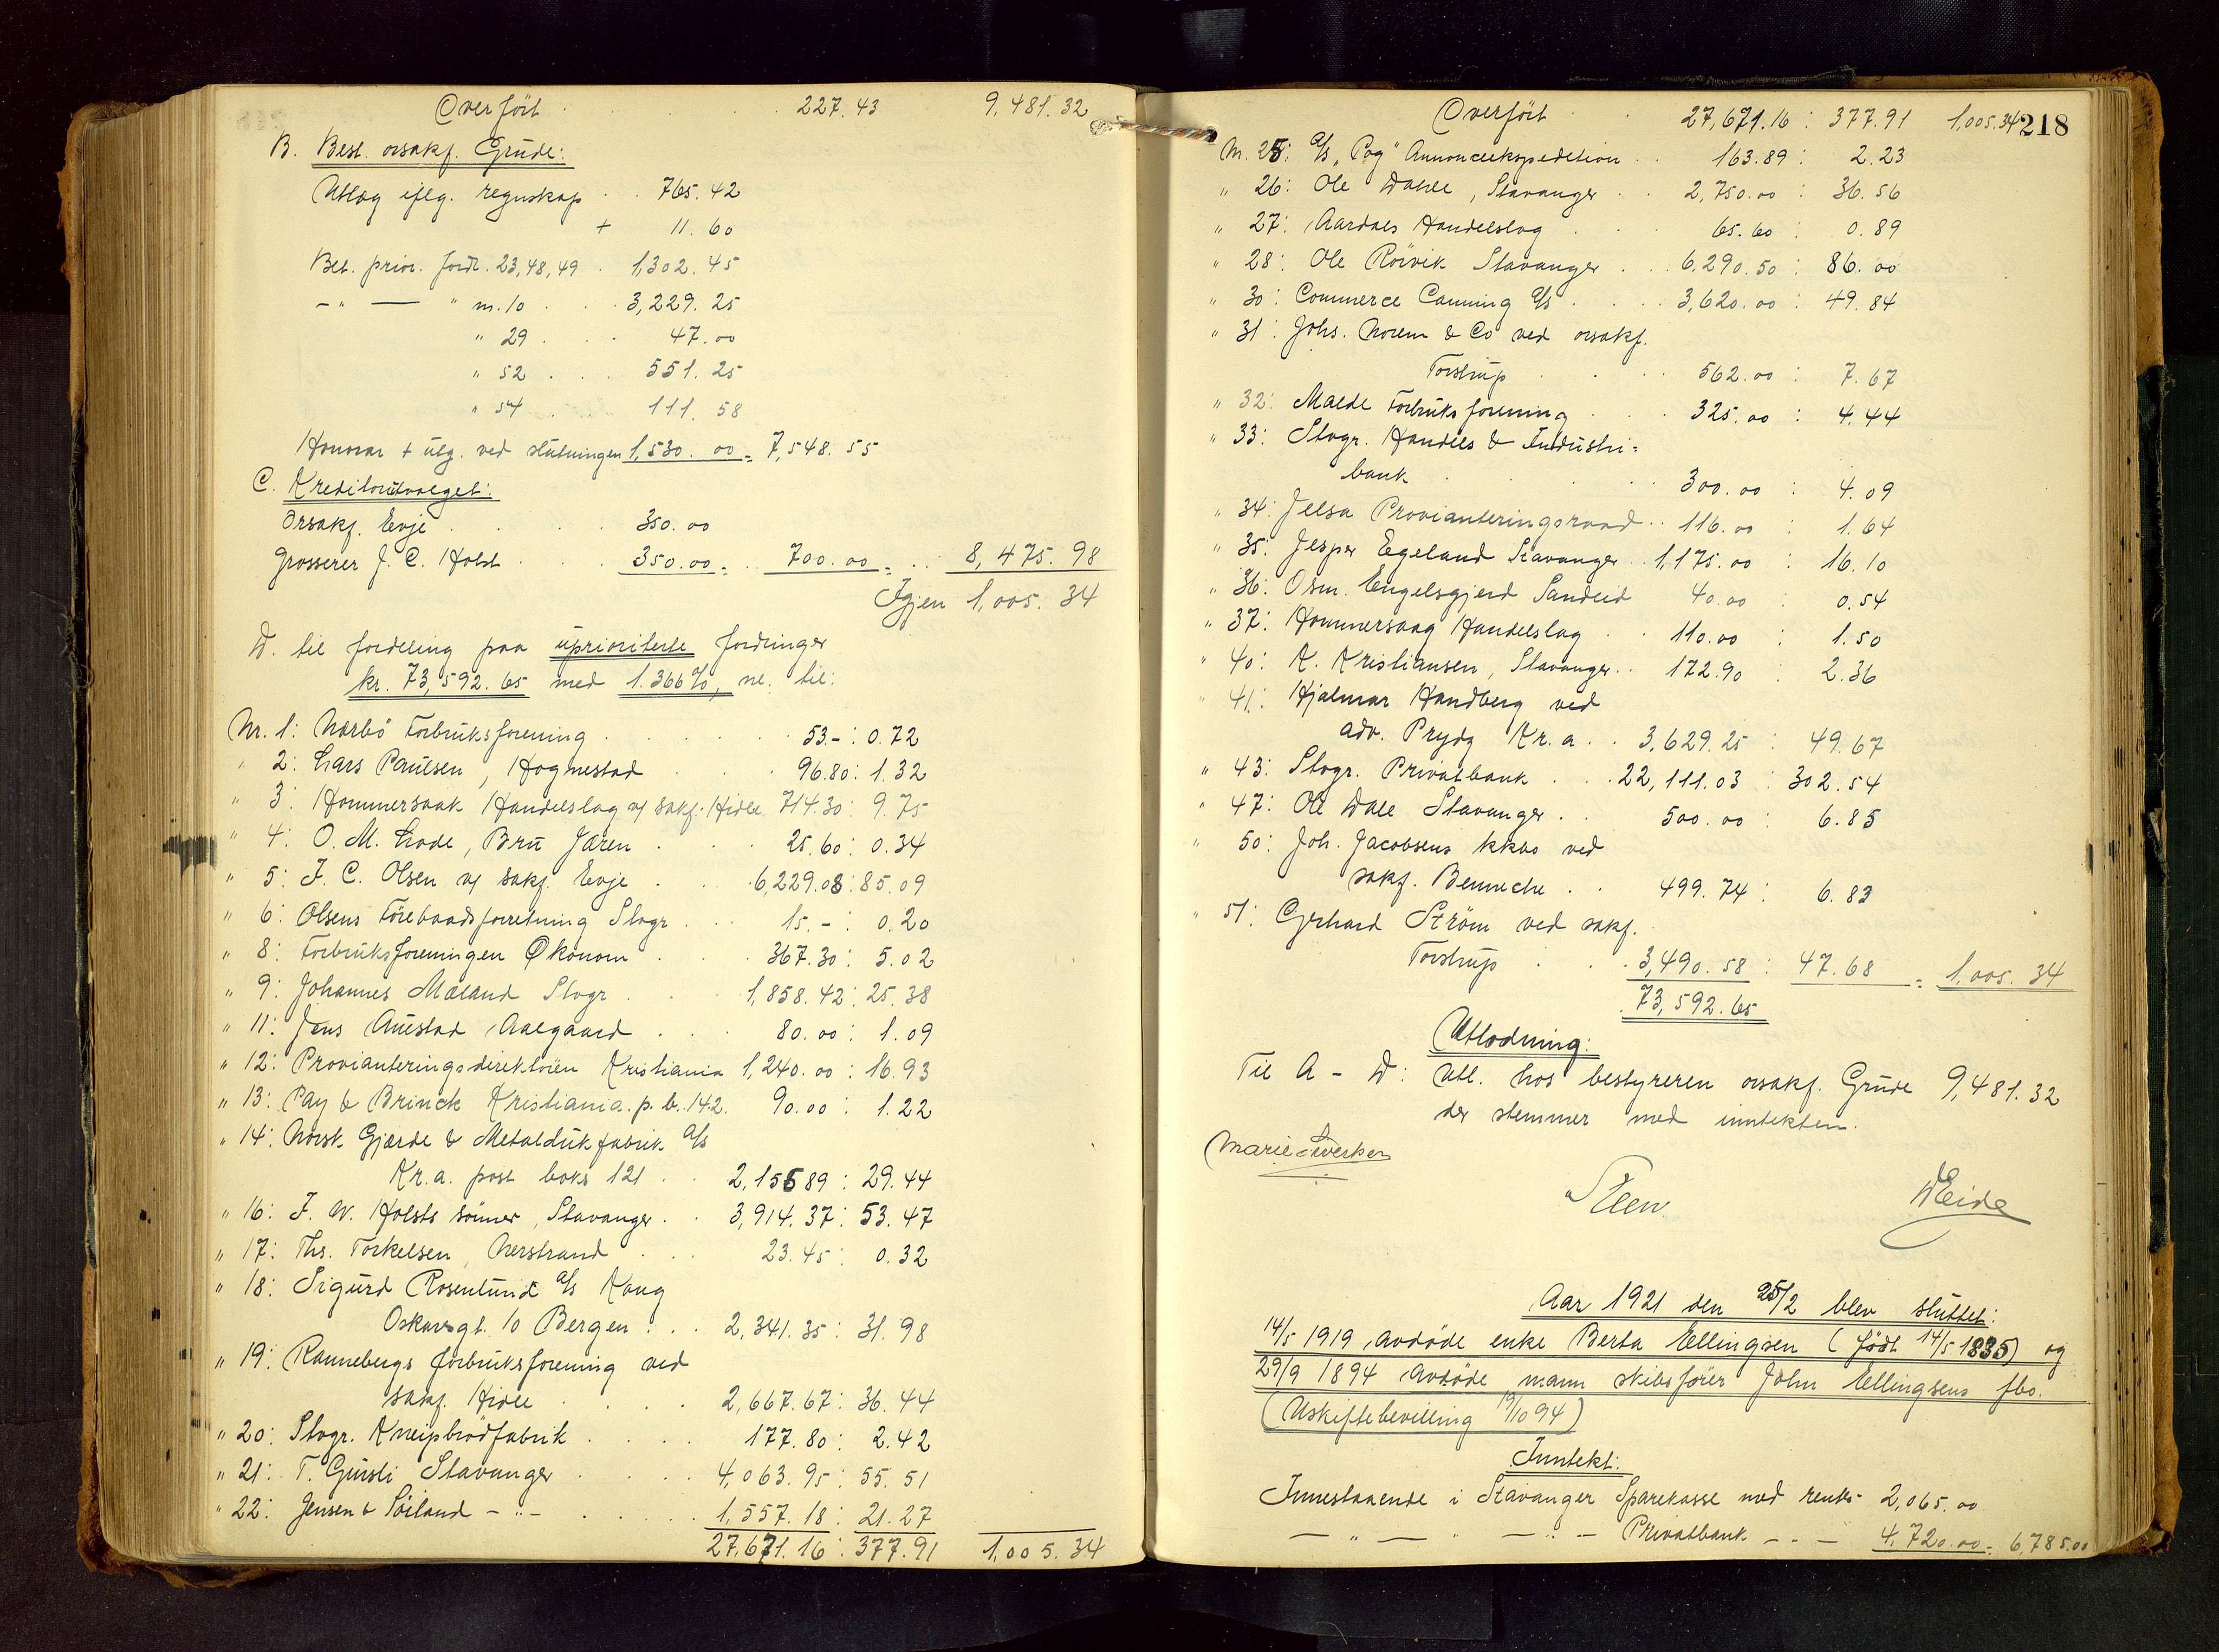 Overført . . . . 227.43 9,481.32
B. Best. orsakf. Grude:
Utlæg eflg. regnskap . . 765.42
+ 11.60
Bet. prior. fordr. 23,48,49 . 1,302.45
-"- — " nr. 10 . . . 3,229.25
" 29 . . . 47.00
" 52 . . . 551.25
" 54 . . 111.58
Honorar + utg. ved slutningen 1,530.00 = 7,548.55
C. Kreditorutvalget:
Orsakf. Evje . . . . 350.00
Grosserer J. C. Holst . . . 350.00 = . . 700.00 = . . 8,475.98
Igjen 1,005.34
D. til fordeling paa uprioriterte fordringer
kr. 73,592.65 med 1.366%, nl. til:
Nr. 1: Nærbø Forbruksforening . . . . . 53.-: 0.72
" 2: Lars Paulsen, Hognestad . . . 96.80: 1.32
" 3: Hommersaak Handelslag v/ sakf. Hidle 714.30: 9.75
" 4: O. M. Lode, Bru Jæren . . . 25.60: 0.34
" 5: F. C. Olsen v/ sakf. Evje . . . 6,229.08: 85.09
" 6: Olsens Tørebaadsforretning Stvgr . . 15.-: 0.20
" 8: Forbruksforeningen Økonom . . . 367.30: 5.02
" 9: Johannes Mæland Stvgr . . . 1,858.42: 25.38
" 11: Jens Austad Aalgaard . . . 80.00: 1.09
" 12: Provianteringsdirektøren Kristiania 1,240.00: 16.93
" 13: Pay & Brinck Kristiania. p.b. 142. 90.00: 1.22
" 14: Norsk Gjærde & Metaldukfabrik A/s
Kr.a. post boks 121 . . 2,155 89: 29.44
" 16: F. W. Holsts sönner, Stavanger . . 3,914.37: 53.47
" 17: Ths. Torkelsen, Nerstrand . . . 23.45: 0.32
" 18: Sigurd Rosenlund A/s Kong
Oskarsgt. 10 Bergen . . . 2,341.35: 31.98
" 19: Rannebergs forbruksforening ved
sakf. Hidle . . . . 2,667.67: 36.44
" 20: Stvgr. Kneipbrödfabrik . . . . 177.80: 2.42
" 21: T. Gursli Stavanger . . . . 4,063.95: 55.51
" 22: Jensen & Söiland -"- . . . . . 1,557.18: 21.27
27,671.16: 377.91 1,005.34
Overført . . 27,671.16: 377.91 1,005.34 218
Nr. 25: A/s "Pog" Annonceekspedition . . 163.89: 2.23
" 26: Ole Dahle, Stavanger . . 2,750.00: 36.56
" 27: Aardals Handelslag . . . 65.60: 0.89
" 28: Ole Röivik Stavanger . . . 6,290.50: 86.00
" 30: Commerce Canning A/s . . . . 3,620.00: 49.84
" 31: Johs. Norem & Co ved orsakf.
Torstrup . . . . 562.00: 7.67
" 32: Malde Forbruksforening . . . 325.00: 4.44
" 33: Stvgr. Handels & Industri=
bank . . . . . 300.00: 4.09
" 34: Jelsa Provianteringsraad . . 116.00: 1.64
" 35: Jesper Egeland Stavanger . . 1,175.00: 16.10
" 36: Osm. Engelsgjerd Sandeid 40.00: 0.54
" 37: Hommersaag Handelslag . . 110.00: 1.50
" 40: K. Kristiansen, Stavanger . . 172.90: 2.36
" 41: Hjalmar Handberg ved
adv. Prydz Kr.a. . . 3,629.25: 49.67
" 43: Stvgr. Privatbank . . . 22,111.03: 302.54
" 47: Ole Dale Stavanger . . 500.00: 6.85
" 50: Joh. Jacobsens kkbo ved
sakf. Benneche . . 499.74: 6.83
" 51: Gerhard Ström ved sakf.
Torstrup . . . 3,490.58: 47.68 = 1,005.34
73,592.65
Utlodning:
Til A - D: utl. hos bestyreren orsakf. Grude 9,481.32
der stemmer med inntekten.
Marie Sverken
Steen. D Eide
Aar 1921 den 25/2 blev sluttet:
14/5 1919 avdöde enke Berta Ellingsen (född 14/5 1835) og
29/9 1894 avdöde mann skibsförer John Ellingsens fbo.
(Uskiftebevilling 19/10 94)
Inntekt:
Innestaaende i Stavanger Sparekasse med renter 2,065.00
— " — " — " — Privatbank - " - 4,720.00 = 6,785.00